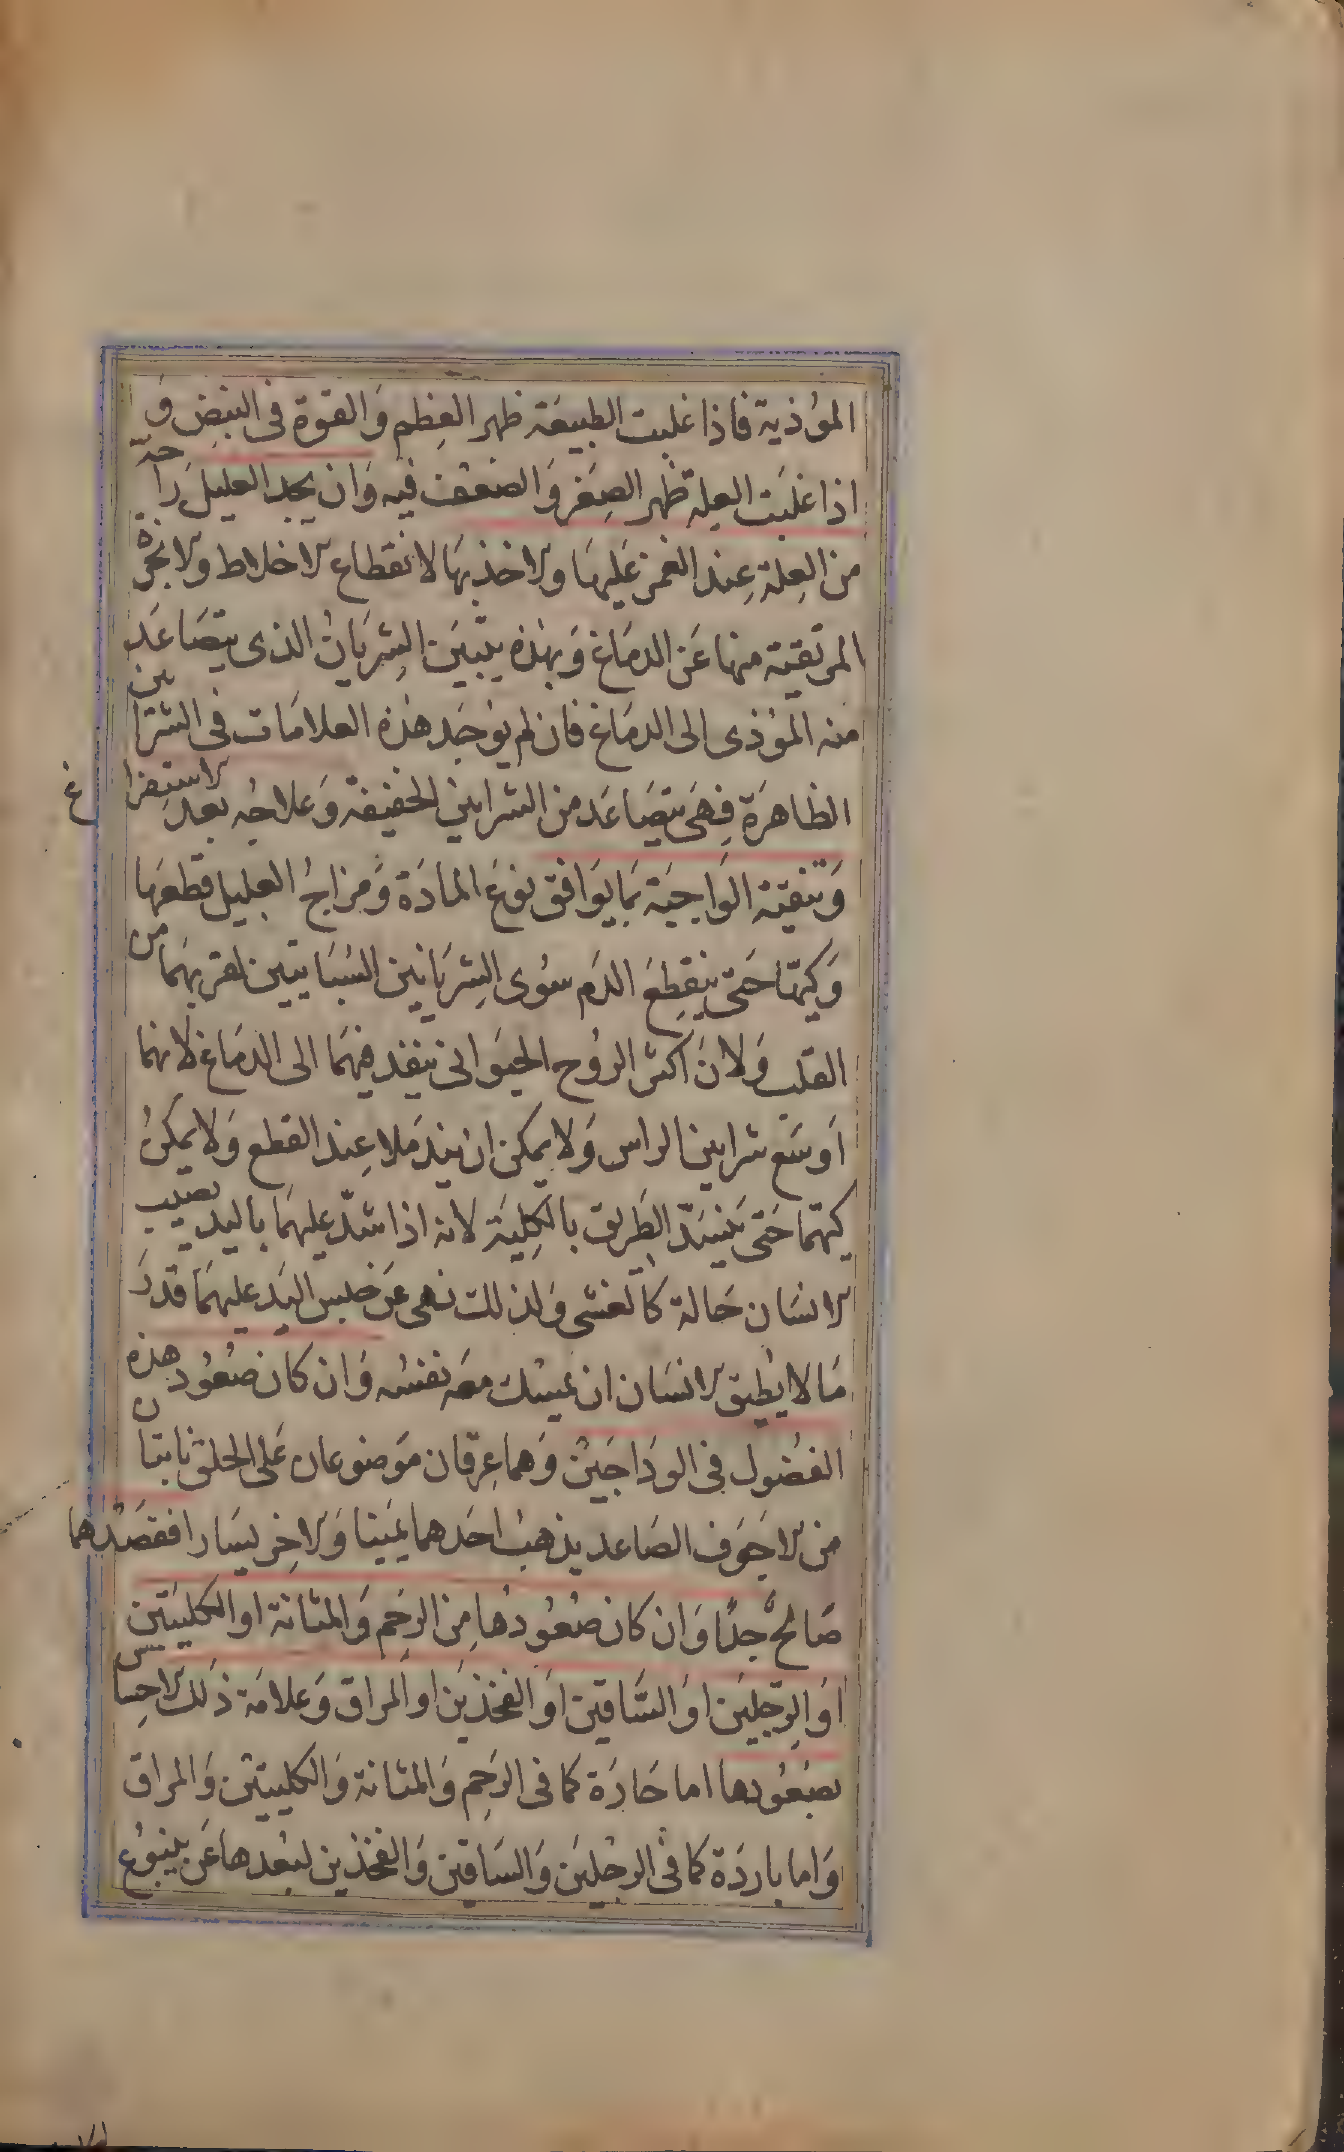 المؤذية فاذا غلبت الطبيعة ظهر العِظم وَالقوة فى النبض وَ
اذا غلبَت العلة ظهر الصِغر وَالضعف فيه وَان يجد العليل رَاحة
من العِلة عِند الغمز عَليهَا والاخذ بهَا لانقطاع الاخلاط والابخرة
المرتقية منها عَن الدمَاغ وَبهذه يتبيَن الشِريَانُ الذى يتصَاعَد
منه المؤذى الى الدمَاغ فان لم يوجَد هٰذه العلامَات فى الشرايين
الظاهرَة فِهىَ يتصَاعَد من الشرايين الخفيفة وَعلاجُه بعد الاستفراغ
وَتنقية الوَاجبَة بمَا يوَافق نوعَ المادَة وَمزاجُ العليل قطعهَا
وَكيهَا حَتى ينقطِعَ الدَم سوُى الشِريَانَين السُبَاتيَين لقربهمَا من
القلب وَلانَ اكثر الروُح الحيوَانى ينفذ فيهمَا الى الدمَاغ لانهما
اَوسَع شرايين الراس وَلا يمكن ان يندملا عِند القطع وَلا يمكنُ
كيهمَا حَتى يَنسَدّ الطَريق بالكِليَة لانه اذا شدّ عليهمَا باليد يصيب
الانسَان حَالة كالغشى وَلذلك نهى عَن حَبس اليَد عليهمَا قدرَ
مَا لا يُطيق الانسَان ان يمسُك معَه نفسُه وَان كان صُعُود هذه
الفضُول فى الودَاجَينْ وَهما عِرقان مَوضوعان عَلى الحلق نابتان
من الاجَوف الصَاعد يذهبُ احَدهما يَمينا وَالاخِر يسَارا ففصَدْهما
صَالحٌ جِدًّا وَان كان صُعُودُها مِن الرحَم وَالمثانة او الكليتَين
اوَ الرِجليَن اوَ السَّاقين اوَ الفخذيَن او المراق وَعلامَة ذٰلك الاحِساس
بصُعُودها اما حَارَة كما فى الرَحِم وَالمثانة وَالكليتَين وَالمراق
وَاما بارِدَة كما فى الرجُليَن وَالسَاقين وَالفخذين لبعُدها عَن ينبوُع